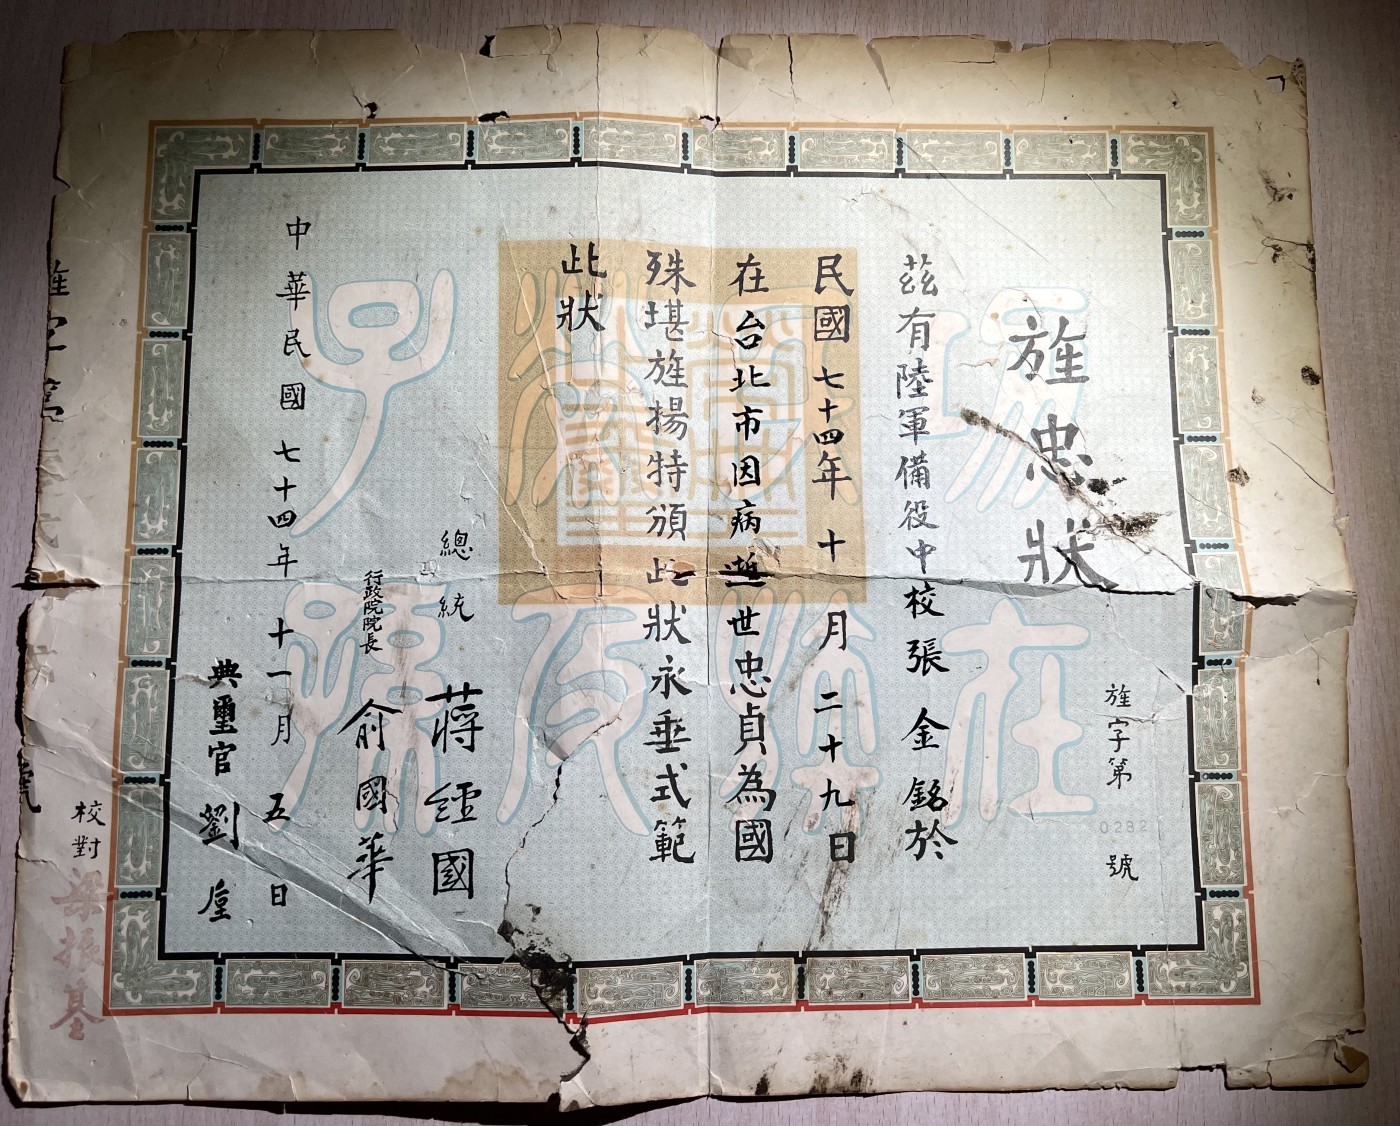 旌忠狀
旌字第0282號
茲有陸軍備役中校張金銘於
民國七十四年十月二十九日
在台北市因病逝世忠貞為國
殊堪旌揚特頒此狀永垂式範
此狀
總統 蔣經國
行政院院長 俞國華
中華民國七十四年十一月五日
典璽官 劉垕
校對 梁振基